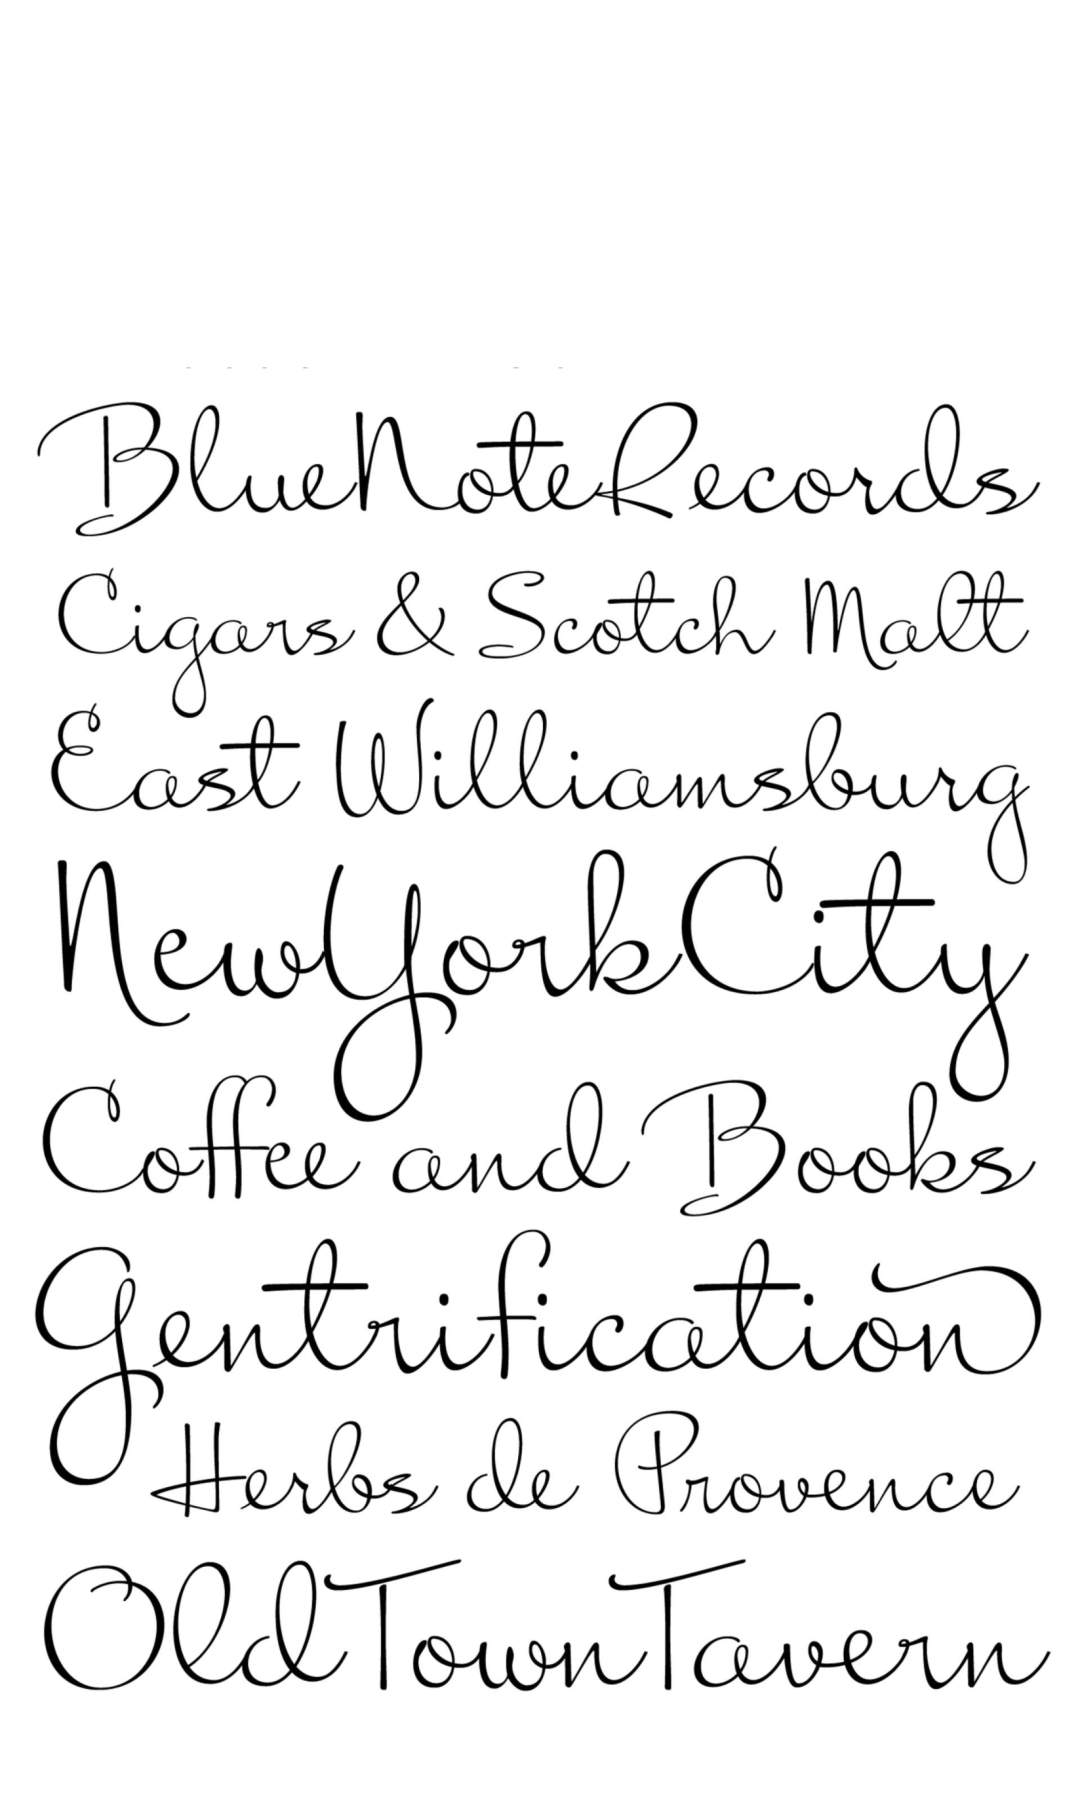 BlueNoteRecords
Cigars & Scotch Malt
East Williamsburg
NewYorkCity
Coffee and Books
Gentrification
Herbs de Provence
OldTownTavern